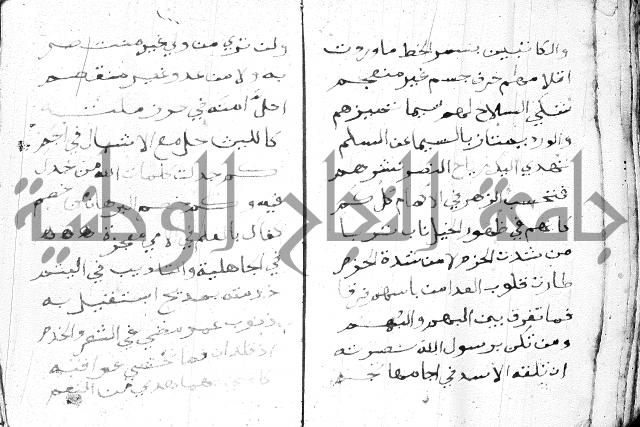 والكاتبين بسمر الخط ما تركت
اقلامهم حرف جسم غير منعجم
شاكي السلاح لهم سيما تميزهم
والورد يمتاز بالسيما عن السلم
تهدي اليك رياح النصر نشرهم
فتحسب الزهر في الاكمام كل كم
كانهم في ظهور الخيل نبت ربا
من شدت الحزم لا من شدة الحزم
طارت قلوب العدا من باسهم فرقا
فما تفرق بين البهم والبهم
ومن تكن برسول الله نصرته
ان تلقه الاسد في اجامها تجم
ولن تري من ولي غير منتصر
به ولا من عدو غير منقصم
احل امته في حرز ملته
كالليث حل مع الاشبال في اجم
كم جدلت كلمات الله من جدل
فيه وكم خصم البرهان من خصم
كفاك بالعلم في الامي معجزة
في الجاهلية والتاديب في اليتم
خدمته بمديح استقيل به
ذنوب عمر مضي في الشعر والخدم
اذ قلداني ما تخشي عواقبه
كانني بهما هدي من النعم
جامعة النجاح الوطنية